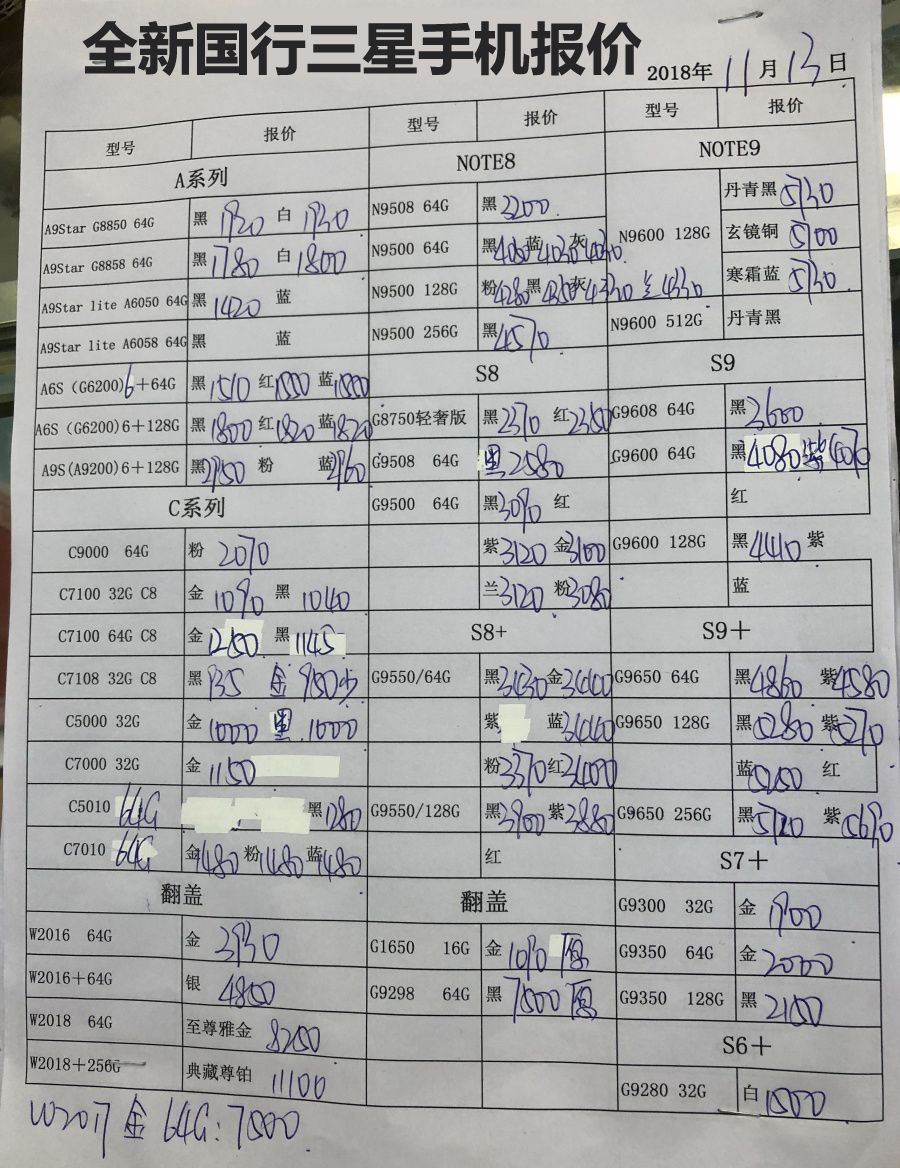 全新国行三星手机报价
2018年 11月 13日
型号 报价 型号 报价 型号 报价
A系列 NOTE8 NOTE9
A9Star G8850 64G 黑 1920 白 1930 N9508 64G 黑 3200 N9600 128G 丹青黑 5730
A9Star G8858 64G 黑 1780 白 1800 N9500 64G 黑 4060 蓝 4030 灰 4040 玄镜铜 5700
寒霜蓝 5730
A9Star lite A6050 64G 黑 1420 蓝 N9500 128G 粉 4280 黑 4350 灰 4330 兰 4330
A9Star lite A6058 64G 黑 蓝 N9500 256G 黑 4570 N9600 512G 丹青黑
A6S (G6200)6+64G 黑 1510 红 1550 蓝 1550 S8 S9
A6S (G6200)6+128G 黑 1800 红 1820 蓝 1820 G8750轻奢版 黑 2370 红 2350 G9608 64G 黑 3600
A9S(A9200)6+128G 黑 2950 粉 蓝 2960 G9508 64G 黑 2580 G9600 64G 黑 4080 紫 4070
C系列 G9500 64G 黑 3090 红 红
C9000 64G 粉 2070 紫 3120 金 3100 G9600 128G 黑 4410 紫
C7100 32G C8 金 1090 黑 1040 兰 3120 粉 3080 蓝
C7100 64G C8 金 黑 1145 S8+ S9+
C7108 32G C8 黑 935 金 G9550/64G 黑 3430 金 3440 G9650 64G 黑 4860 紫 4580
C5000 32G 金 黑 紫 蓝 3440 G9650 128G 黑 5280 紫 5270
C7000 32G 金 1150 粉 3370 红 3400 蓝 红
C5010 64G 黑 1280 G9550/128G 黑 3900 紫 3880 G9650 256G 黑 5720 紫 5690
C7010 64G 金 1480 粉 1480 蓝 1480 红 S7+
翻盖 翻盖 G9300 32G 金 1900
W2016 64G 金 3930 G1650 16G 金 1090 原 G9350 64G 金 2000
W2016+64G 银 4850 G9298 64G 黑 7500 原 G9350 128G 黑 2150
W2018 64G 至尊雅金 8250 S6+
W2018+256G 典藏尊铂 11100 G9280 32G 白 1500
W2017 金 64G:7500